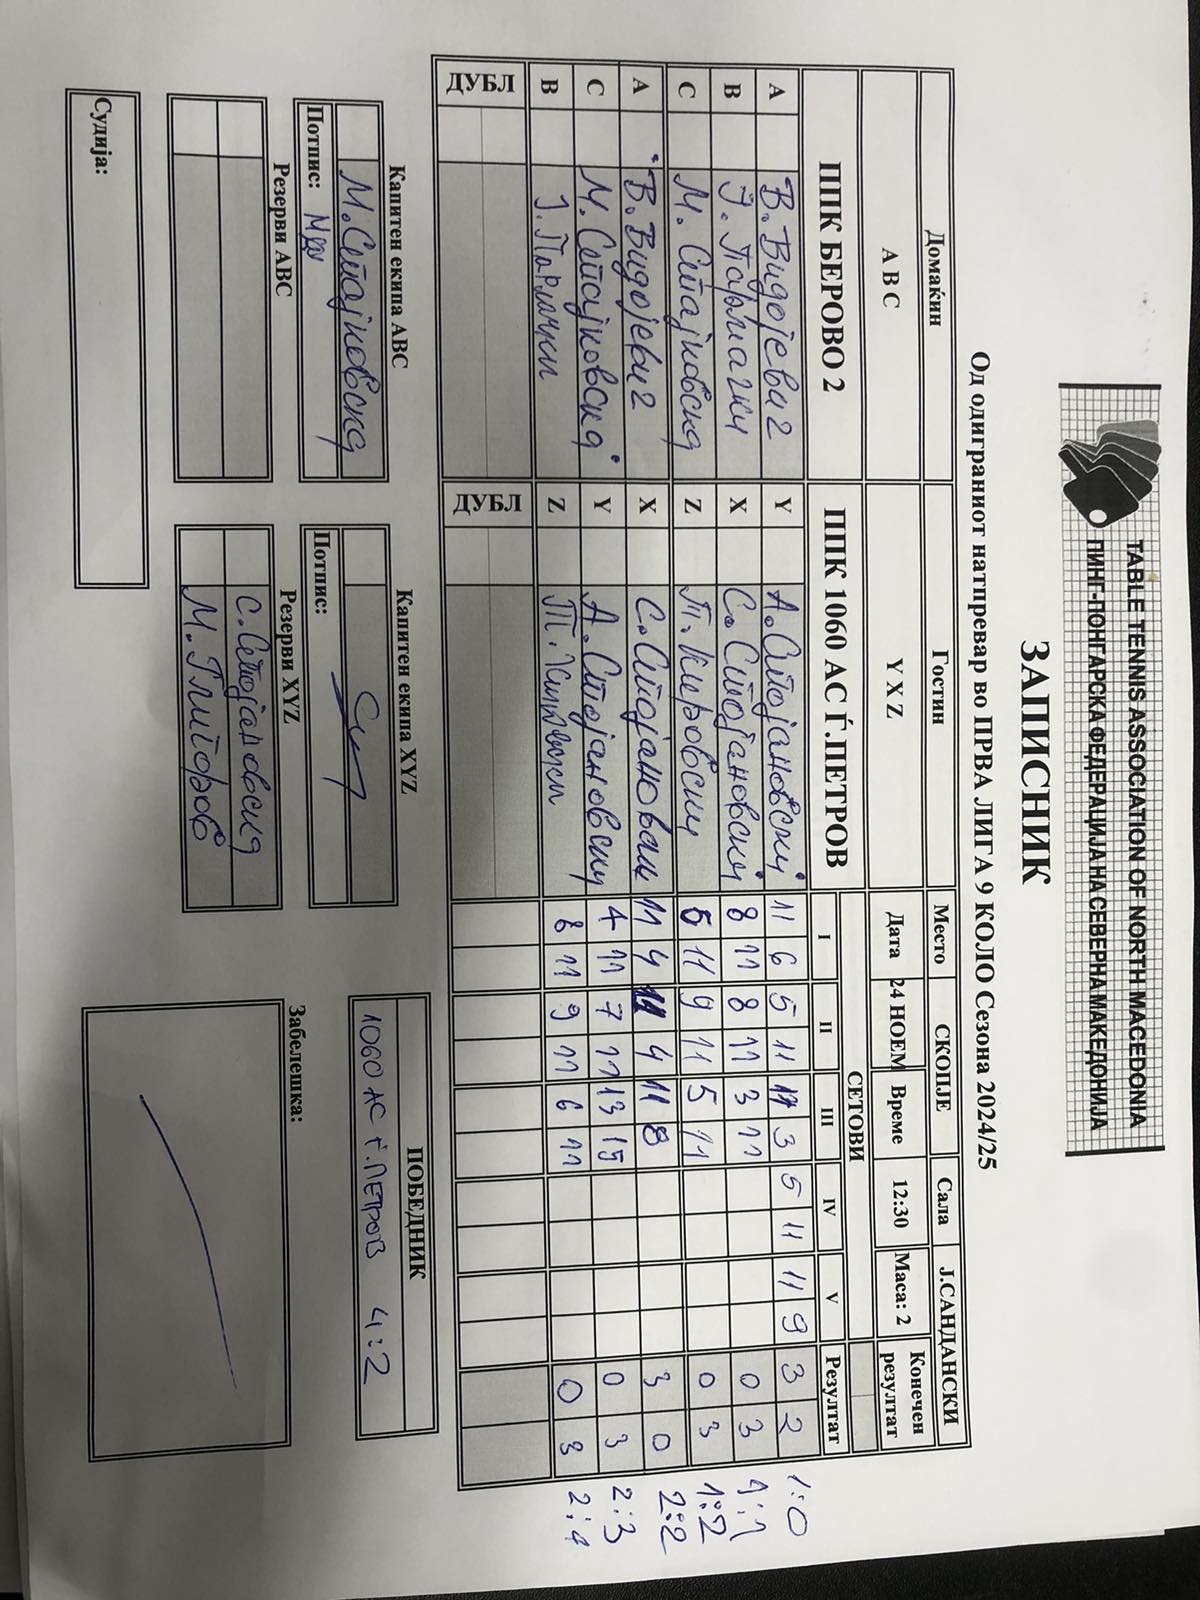 TABLE TENNIS ASSOCIATION OF NORTH MACEDONIA
ПИНГ-ПОНГАРСКА ФЕДЕРАЦИЈА НА СЕВЕРНА МАКЕДОНИЈА
ЗАПИСНИК
Од одиграниот натпревар во ПРВА ЛИГА 9 КОЛО Сезона 2024/25
Домаќин Гостин Место СКОПЈЕ Сала Ј.САНДАНСКИ
A B C Y X Z Дата 24 НОЕМ Време 12:30 Маса: 2 Конечен резултат
ППК БЕРОВО 2 ППК 1060 АС Ѓ.ПЕТРОВ СЕТОВИ
I II III IV V Резултат
A В. Видојевиќ Y А. Стојановски 11 6 5 11 11 3 5 11 11 9 3 2 1:0
B Ј. Парлапски X С. Стојановски 8 11 8 11 3 11 0 3 1:1
C М. Стајковска Z П. Кировски 5 11 9 11 5 11 0 3 1:2
A В. Видојевиќ X С. Стојановски 11 4 11 4 11 8 3 0 2:2
C М. Стајковска Y А. Стојановски 4 11 7 11 13 15 0 3 2:3
B Z 8 11 9 11 6 11 0 3 2:4
ДУБЛ ДУБЛ
Капитен екипа ABC Капитен екипа XYZ ПОБЕДНИК
М. Стајковска 1060 АС Ѓ.ПЕТРОВ 4:2
Потпис: Потпис:
Резерви ABC Резерви XYZ Забелешка:
С. Стојановска
М. Глигоров
Судија: